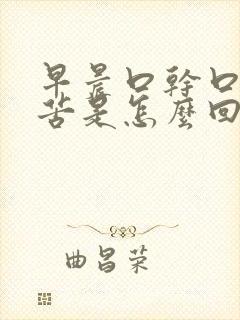 早晨口幹口
苦是怎麼回
曲昌荣